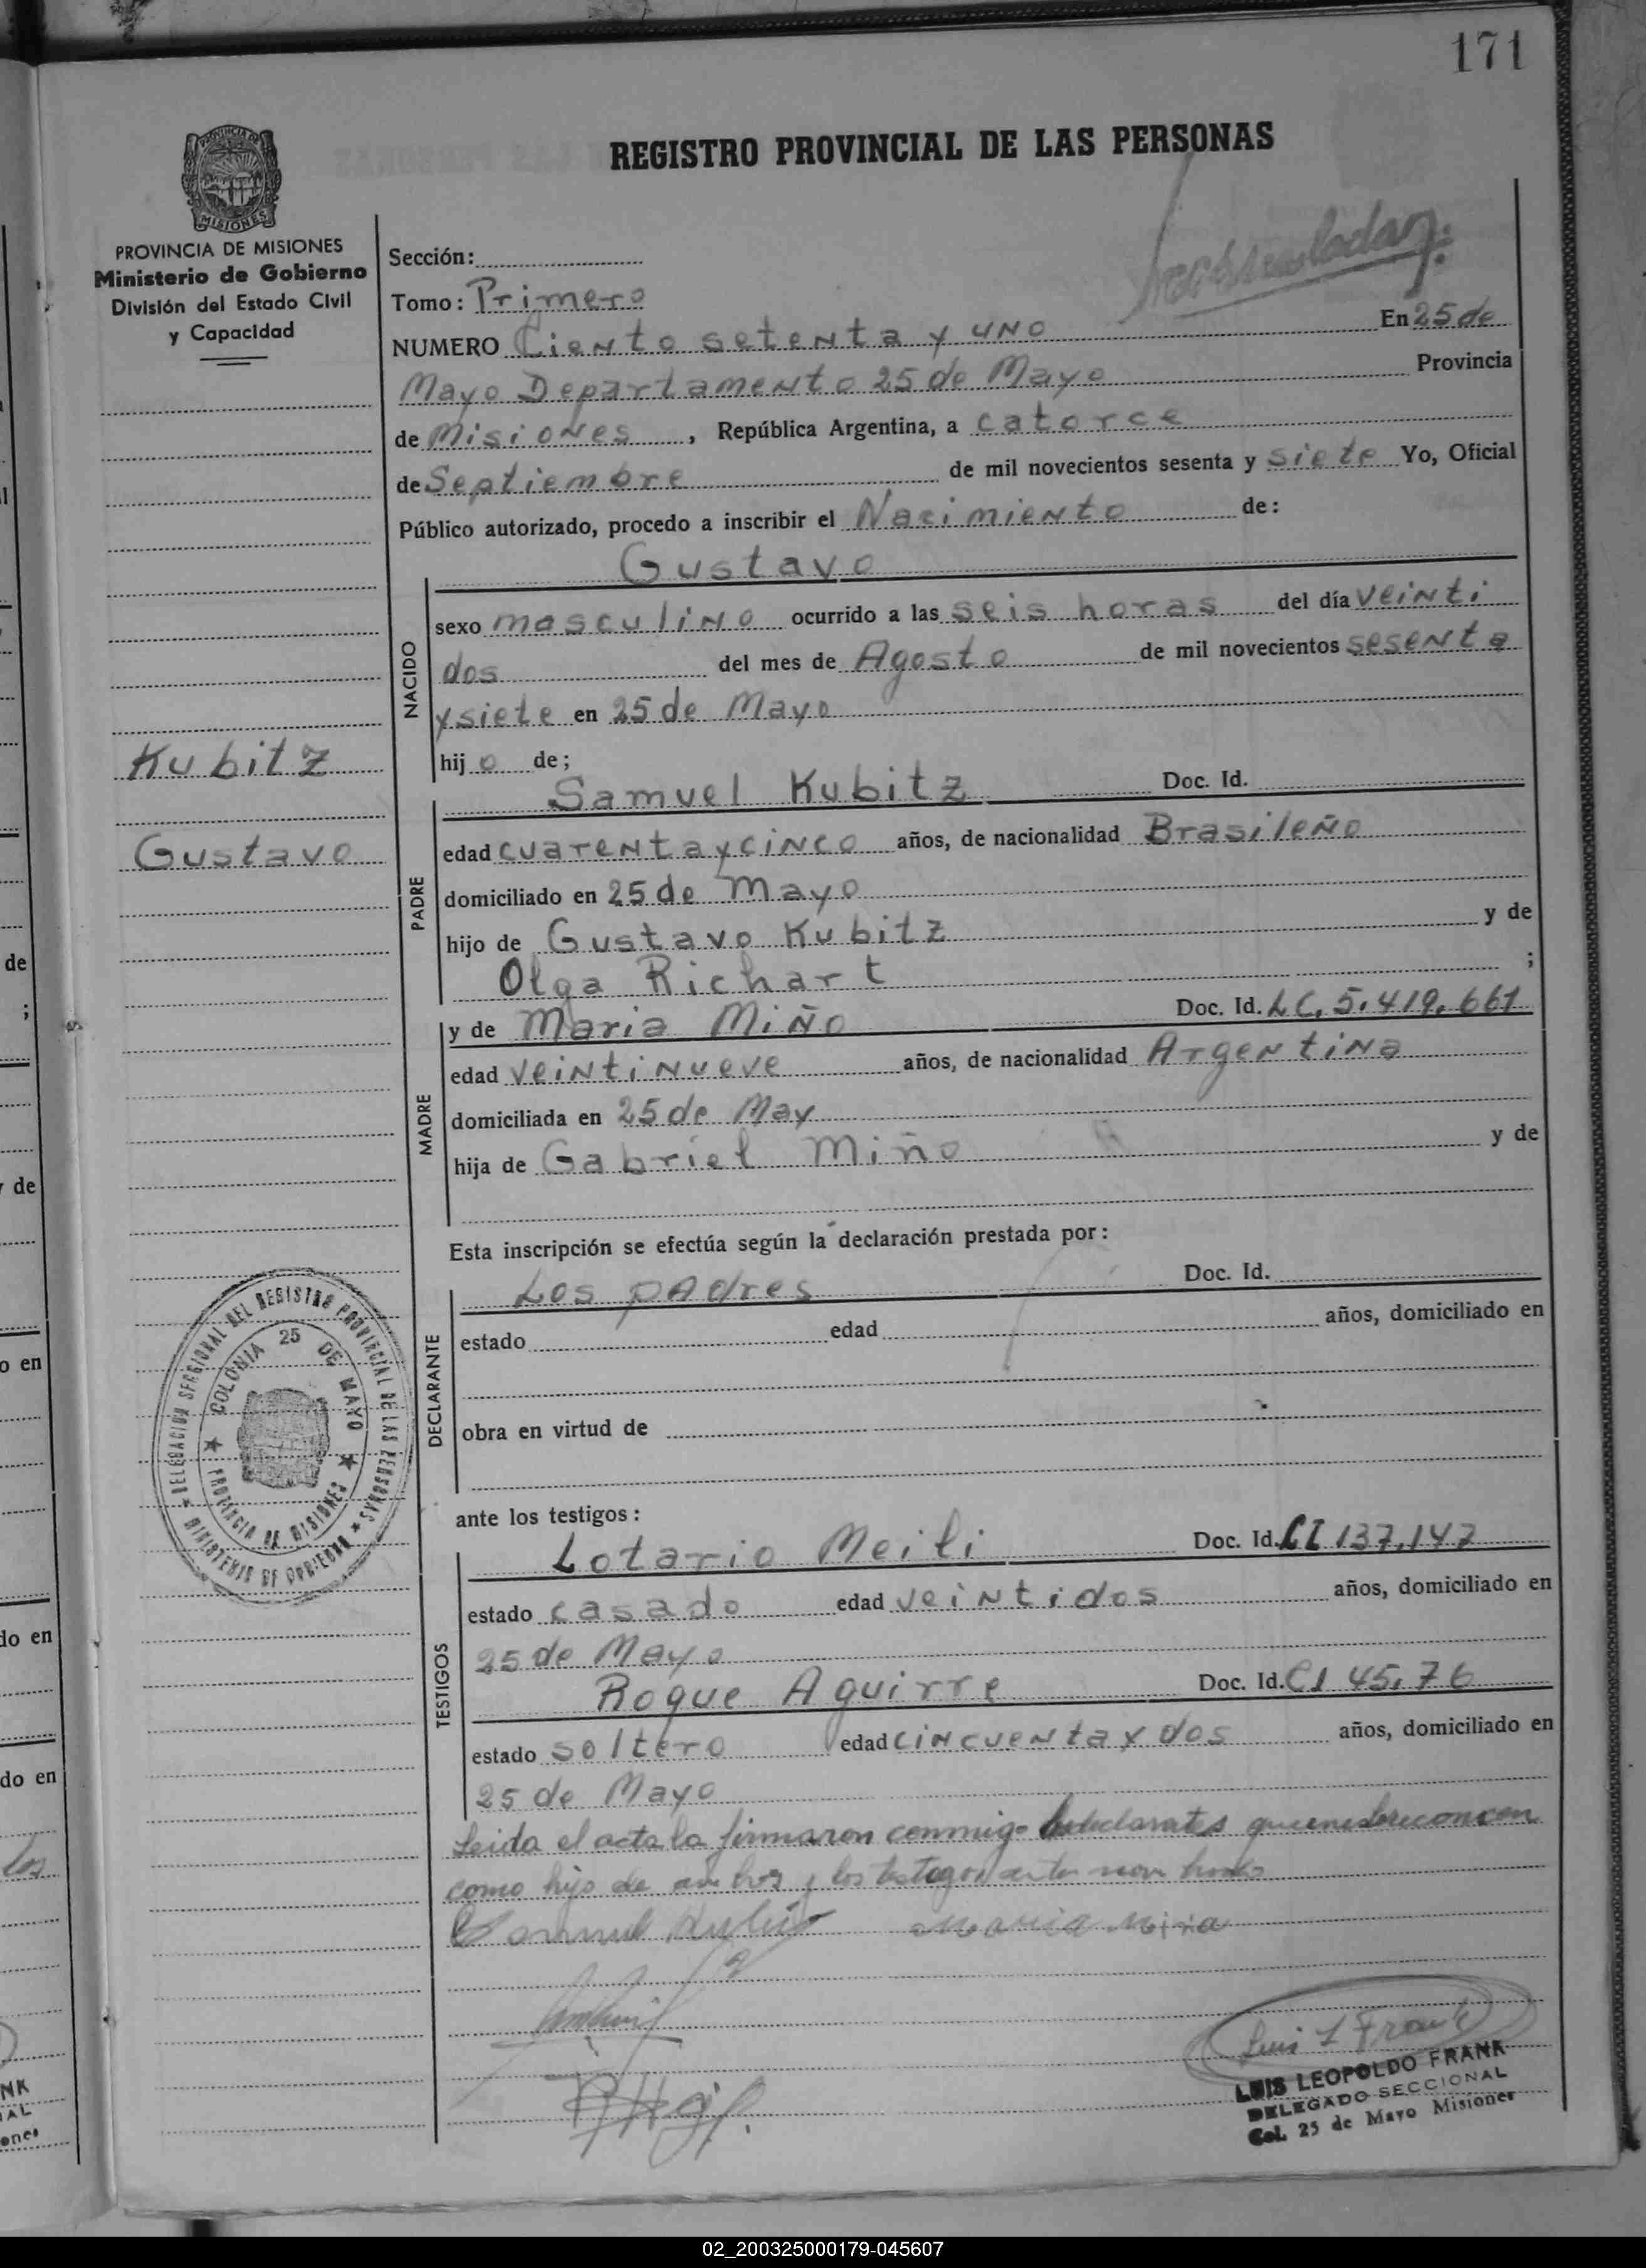 171
REGISTRO PROVINCIAL DE LAS PERSONAS
PROVINCIA DE MISIONES
MISIONES
PROVINCIA DE MISIONES
Ministerio de Gobierno
División del Estado Civil
y Capacidad
Sección:
Tomo: Primero
NUMERO Ciento setenta y uno En 25 de
Mayo Departamento 25 de Mayo Provincia
de Misiones, República Argentina, a catorce
de Septiembre de mil novecientos sesenta y siete Yo, Oficial
Público autorizado, procedo a inscribir el Nacimiento de:
Gustavo
NACIDO
sexo masculino ocurrido a las seis horas del día veinti
dos del mes de Agosto de mil novecientos sesenta
y siete en 25 de Mayo
Kubitz
hijo de;
Samuel Kubitz Doc. Id.
Gustavo
PADRE
edad cuarenta y cinco años, de nacionalidad Brasileño
domiciliado en 25 de Mayo
hijo de Gustavo Kubitz y de
Olga Richart ;
y de Maria Miño Doc. Id. LC. 5.419.661
MADRE
edad veintinueve años, de nacionalidad Argentina
domiciliada en 25 de May
hija de Gabriel Miño y de
Esta inscripción se efectúa según la declaración prestada por:
Los padres Doc. Id.
DECLARANTE
estado edad años, domiciliado en
obra en virtud de
DELEGACION SECCIONAL DEL REGISTRO PROVINCIAL DE LAS PERSONAS
MINISTERIO DE GOBIERNO
COLONIA 25 DE MAYO
PROVINCIA DE MISIONES
ante los testigos:
Lotario Meili Doc. Id. CI 137.147
TESTIGOS
estado casado edad veintidos años, domiciliado en
25 de Mayo
Roque Aguirre Doc. Id. CI 45.76
estado soltero edad cincuenta y dos años, domiciliado en
25 de Mayo
Leida el acta la firmaron conmigo
como hijo de ambos y los testigos
Samuel Kubitz Maria Miño
Luis L Frank
LUIS LEOPOLDO FRANK
DELEGADO SECCIONAL
Col. 25 de Mayo Misiones
02_200325000179-045607